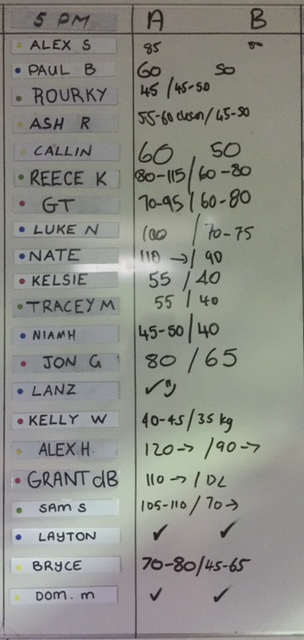 5 PM A B
ALEX S 85 80
PAUL B 60 50
ROURKY 45 / 45-50
ASH R 55-60 clean / 45-50
CALLIN 60 50
REECE K 80-115 / 60-80
GT 70-95 / 60-80
LUKE N 100 / 70-75
NATE 110 → / 90
KELSIE 55 / 40
TRACEY M 55 / 40
NIAMH 45-50 / 40
JON G 80 / 65
LANZ ✓
KELLY W 40-45 / 35 kg
ALEX.H 120→ / 90→
GRANT dB 110 → / DL
SAM S 105-110 / 70→
LAYTON ✓ ✓
BRYCE 70-80 / 45-65
DOM. m ✓ ✓